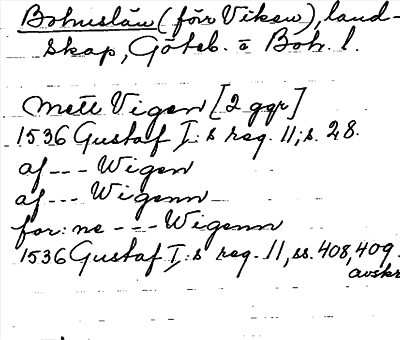 Bohuslän (förr Viken), land-
skap, Göteb. o Boh. l.
mett Vigen [2 ggr]
1536 Gustaf I:s reg. 11, s. 28.
af --- Wigen
af --- Wigenn
for: ne --- Wigenn
1536 Gustaf I:s reg. 11, ss. 408, 409.
avskr